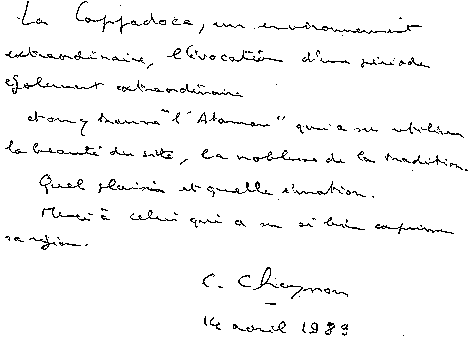 La Cappadoce, un environnement
extraordinaire, l'évocation d'une période
également extraordinaire
et on y trouve "l'Ataman" qui a su utiliser
la beauté du site, la noblesse de la tradition.
Quel plaisir et quelle émotion.
Merci à celui qui a su si bien exprimer
sa région.
C.
14 avril 1989